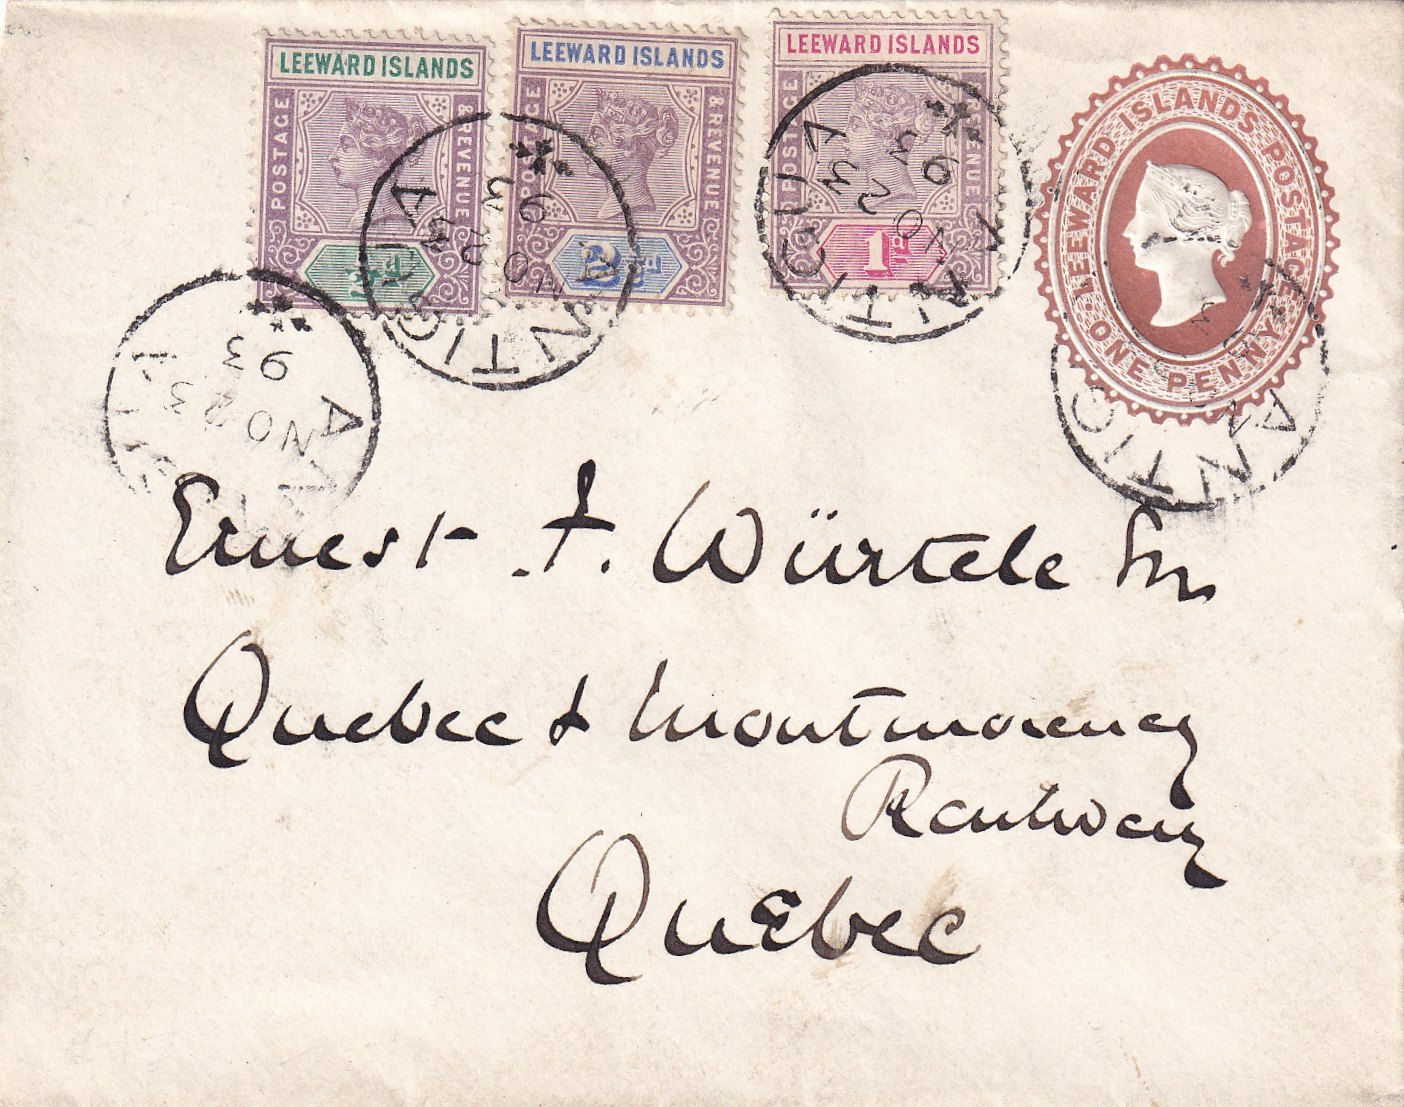 LEEWARD ISLANDS
POSTAGE & REVENUE
½d
LEEWARD ISLANDS
POSTAGE & REVENUE
2½d
LEEWARD ISLANDS
POSTAGE & REVENUE
1d
LEEWARD ISLANDS POSTAGE
ONE PENNY
ANTIGUA
NO 23
93
ANTIGUA
NO 23
93
ANTIGUA
NO 23
93
ANTIGUA
Ernest F. Würtele
Quebec & Montmorency
Railway
Quebec